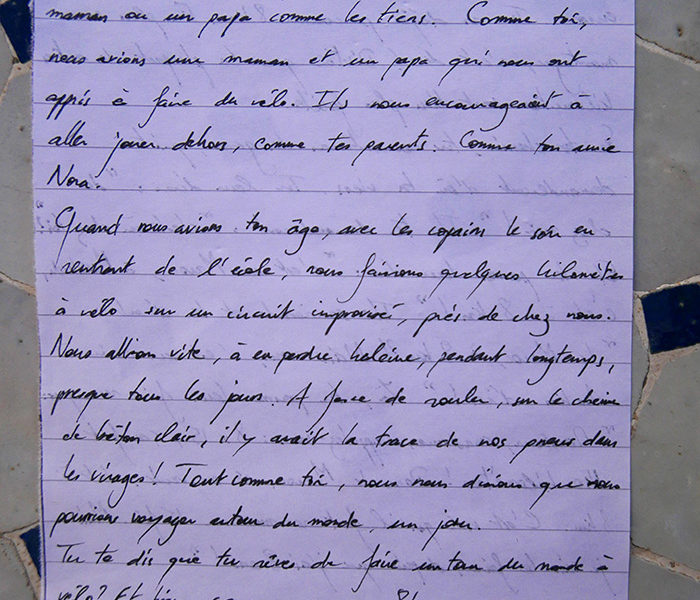 maman ou un papa comme les tiens. Comme toi,
nous avions une maman et un papa qui nous ont
appris à faire du vélo. Ils nous encourageaient à
aller jouer dehors, comme tes parents. Comme ton amie
Nora.
Quand nous avions ton âge, avec les copains le soir en
rentrant de l'école, nous faisions quelques kilomètres
à vélo sur un circuit improvisé, près de chez nous.
Nous allions vite, à en perdre haleine, pendant longtemps,
presque tous les jours. A force de rouler, sur le chemin
de béton clair, il y avait la trace de nos pneus dans
les virages! Tout comme toi, nous nous disions que nous
pourrions voyager autour du monde, un jour.
Tu te dis que tu rêves de faire un tour du monde à
vélo? Et